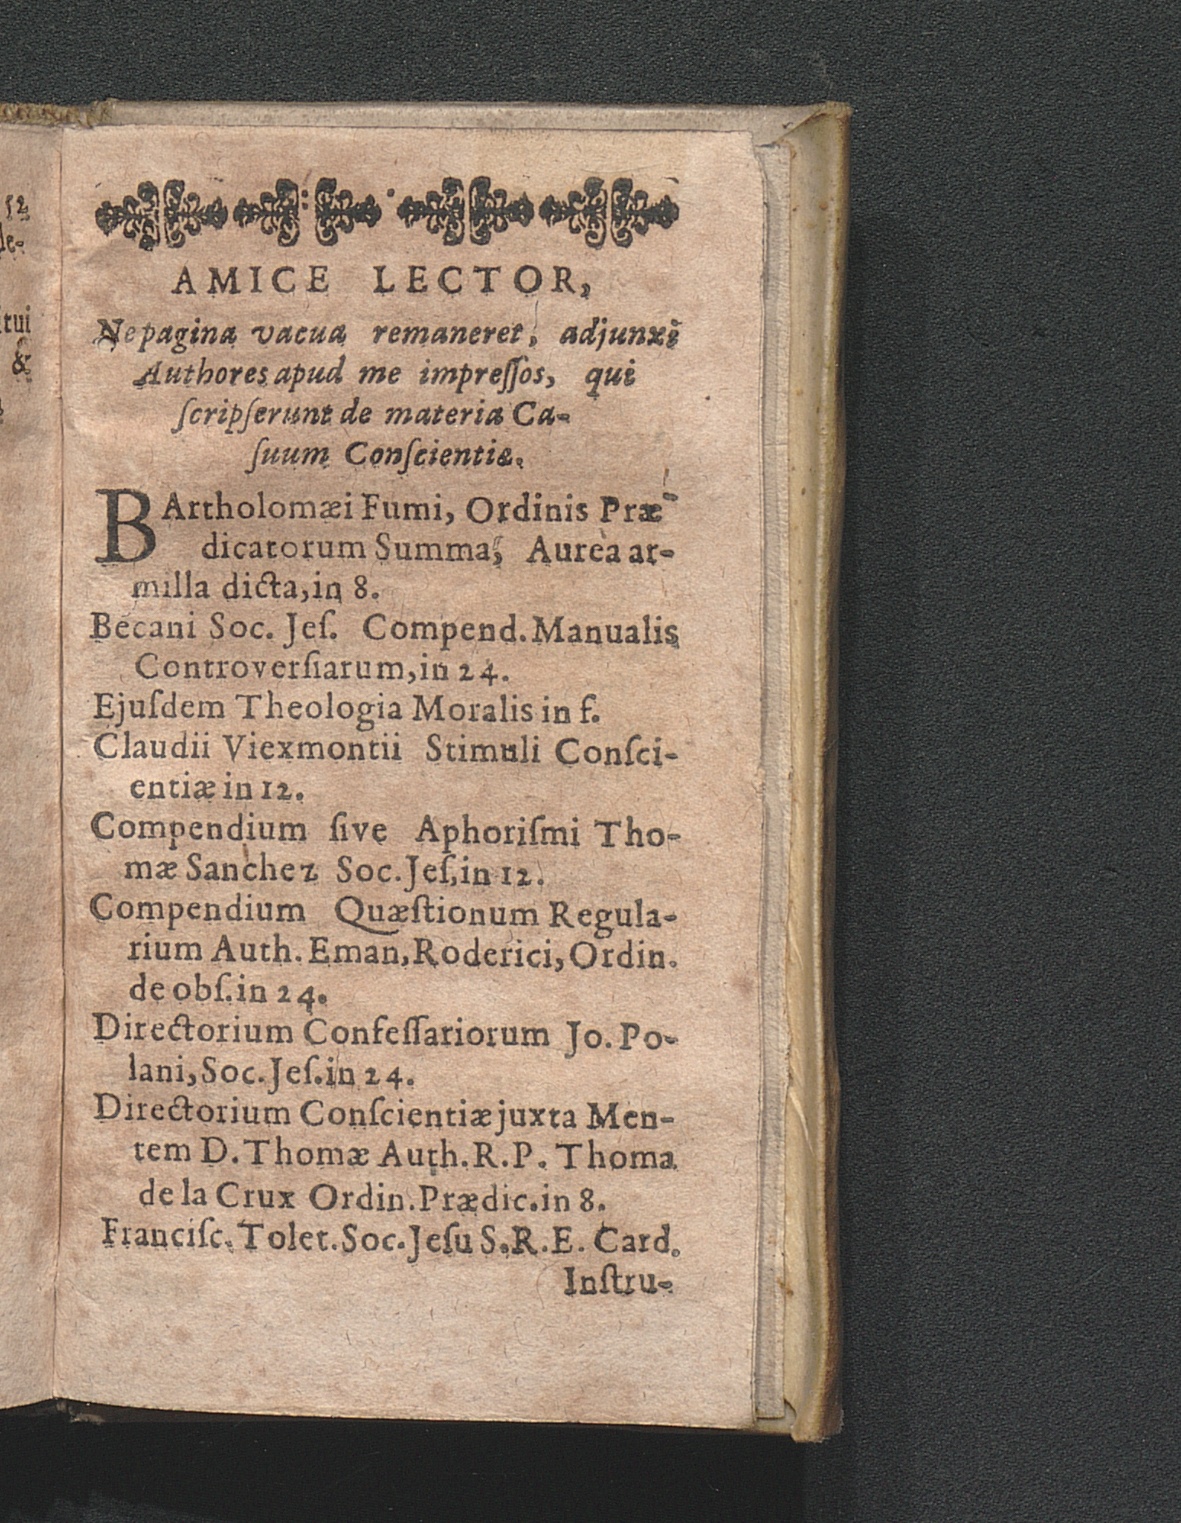 52
de-
itui
&
AMICE LECTOR,
Ne pagina vacua remaneret, adjunxi
Authores apud me impreſſos, qui
ſcripſerunt de materia Ca-
ſuum Conſcientiæ.
BArtholomæi Fumi, Ordinis Præ-
dicatorum Summa, Aurea ar-
milla dicta, in 8.
Becani Soc. Jeſ. Compend. Manualis
Controverſiarum, in 24.
Ejuſdem Theologia Moralis in f.
Claudii Viexmontii Stimuli Conſci-
entiæ in 12.
Compendium ſive Aphoriſmi Tho-
mæ Sanchez Soc. Jeſ, in 12.
Compendium Quæſtionum Regula-
rium Auth. Eman, Roderici, Ordin.
de obſ. in 24.
Directorium Confeſſariorum Jo. Po-
lani, Soc. Jeſ. in 24.
Directorium Conſcientiæ juxta Men-
tem D. Thomæ Auth. R. P. Thoma
de la Crux Ordin. Prædic. in 8.
Franciſc. Tolet. Soc. Jeſu S. R. E. Card.
Inſtru-